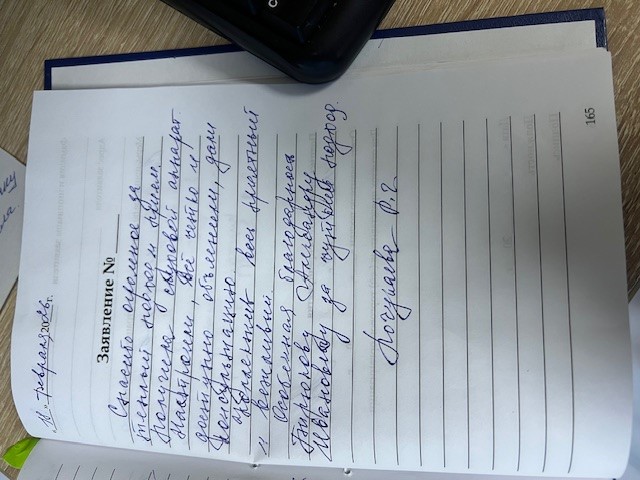 11. февраля 2026 г.
Заявление № ____
Спасибо огромное за
теплый прием.
Получила слуховой аппарат
Настроили, всё чётко и
доступно объяснили, дали
консультацию.
Коллектив весь приятный
и вежливый
Особенная благодарность
Бирюкову Александру
Ивановичу за чуткий подход.
Р.Г.
165